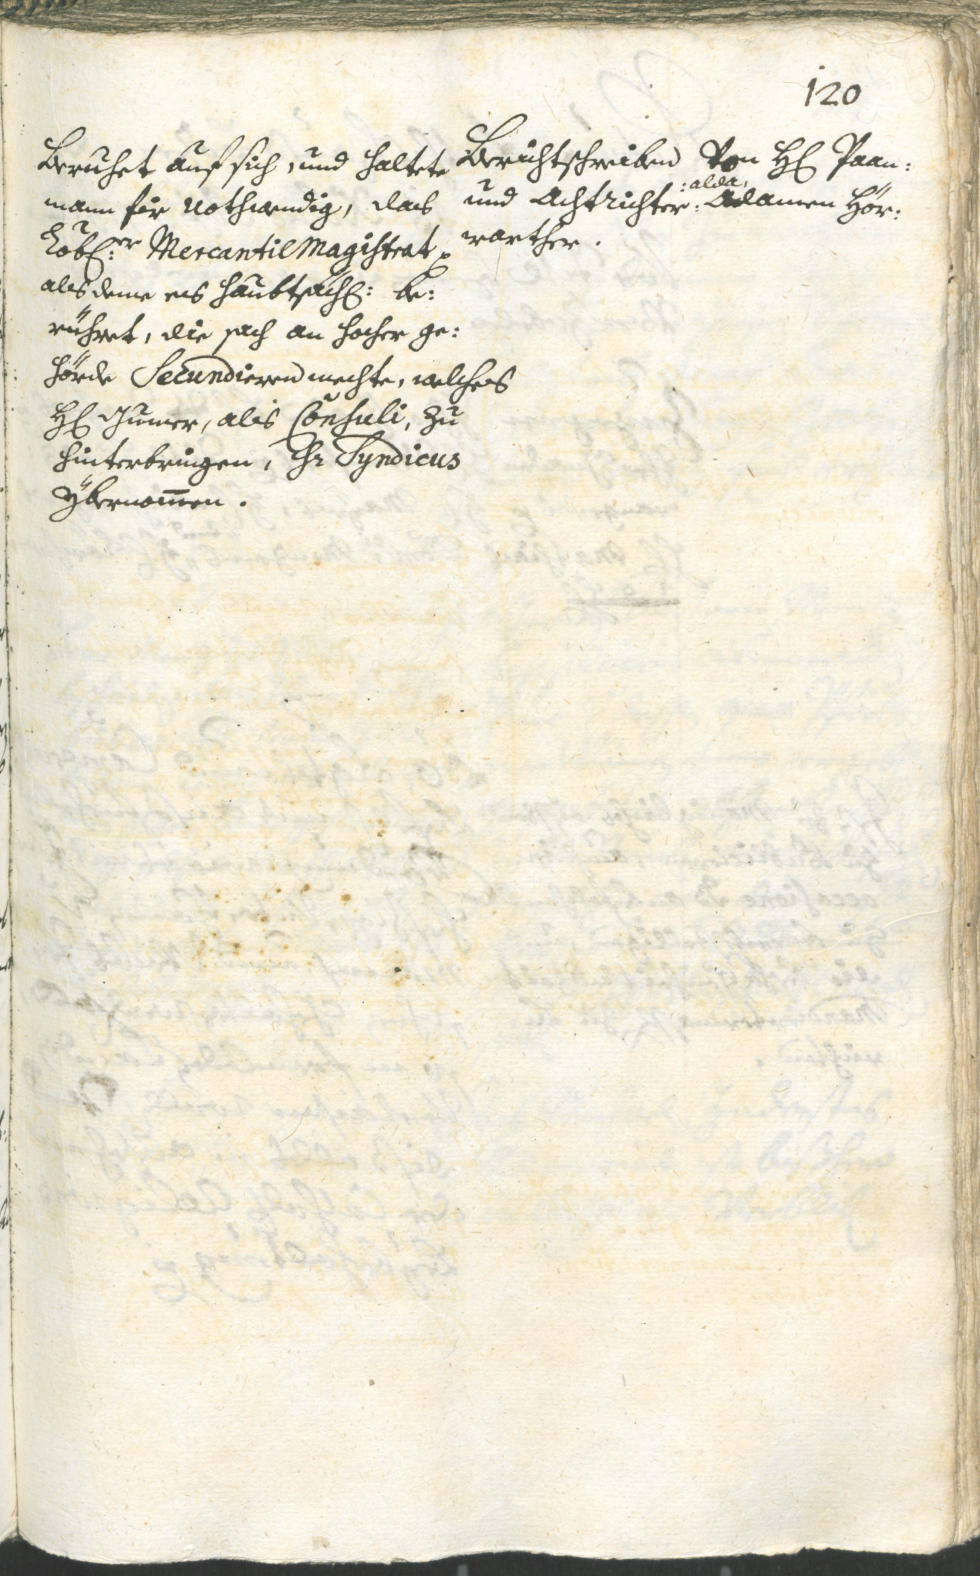 120
Beruhet auf sich, und haltete
mann für nothwendig, das
Löbl: Mercantil Magistrat
als deme es haubtsächl: be:
rühret, die sach an hocher ge:
hörde Secundieren mechte, welches
H: Gumer, als Consuli, zu
hinterbringen, Hr Syndicus
Ybernommen.
Berichtschreiben Von H: Paan:
und Achtrichter :alda, Adamen Hör:
warther.